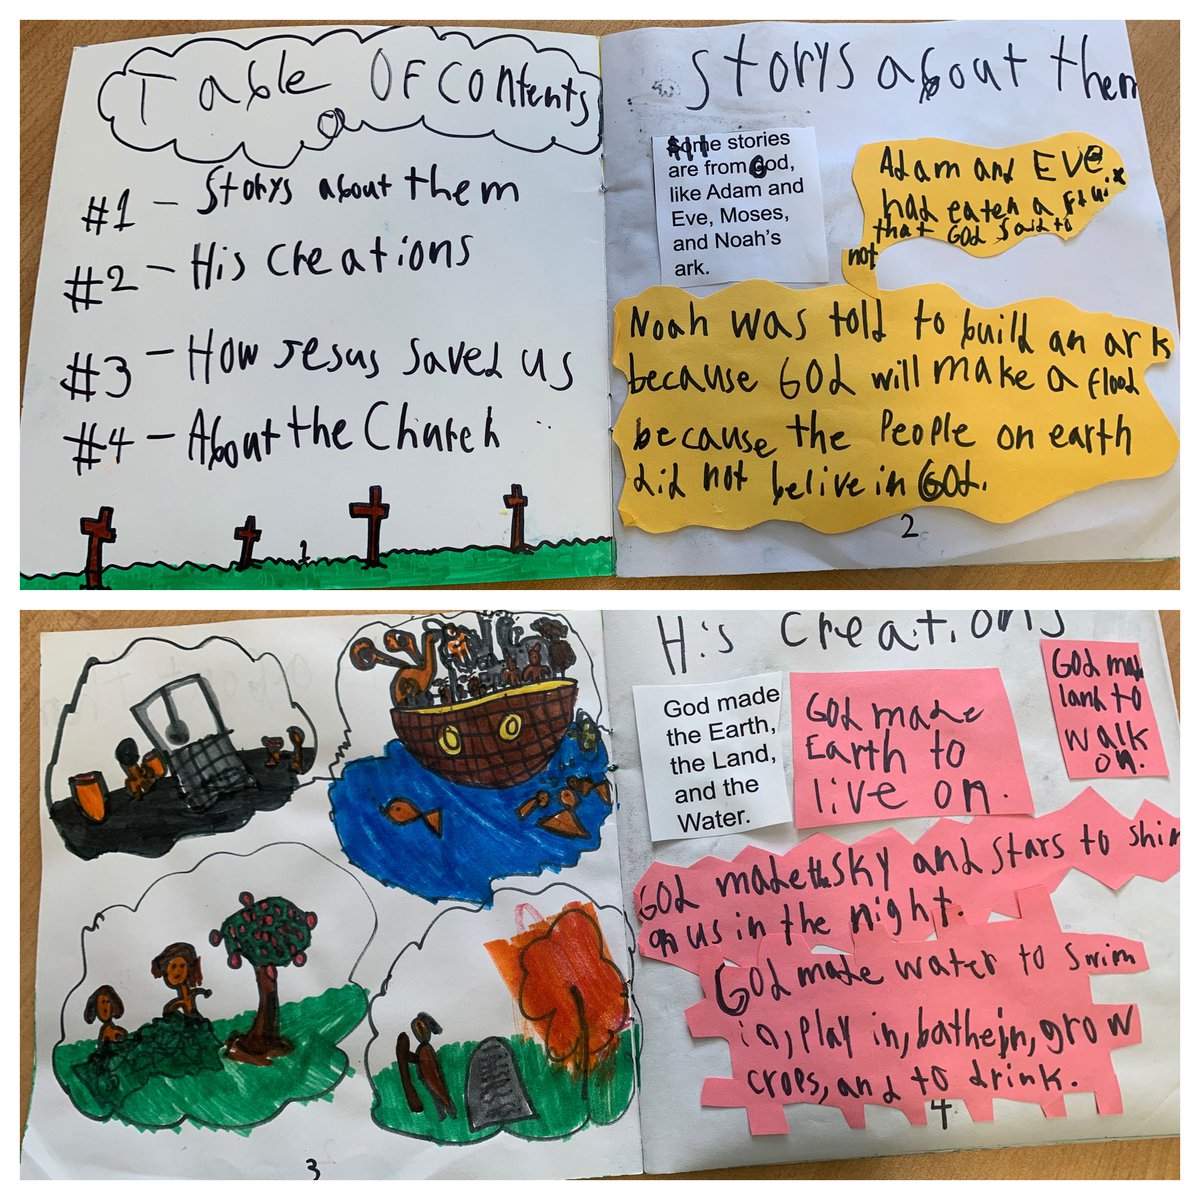 Table OF Contents
#1 - Storys about them
#2 - His Creations
#3 - How Jesus saved us
#4 - About the Church
1
Storys about them
Some stories
are from God,
like Adam and
Eve, Moses,
and Noah's
ark.
Adam and EVE
had eaten a
that GOD said to
not
Noah was told to build an ark
because GOD will make a flood
because the People on earth
did not belive in GOD.
2
3
His Creations
God made
the Earth,
the Land,
and the
Water.
GOD made
Earth to
live on.
GOD made
land to
walk
on.
GOD made the SKY and stars to shin
on us in the night.
GOD made water to swim
in, play in, bathe in, grow
crops, and to drink.
4